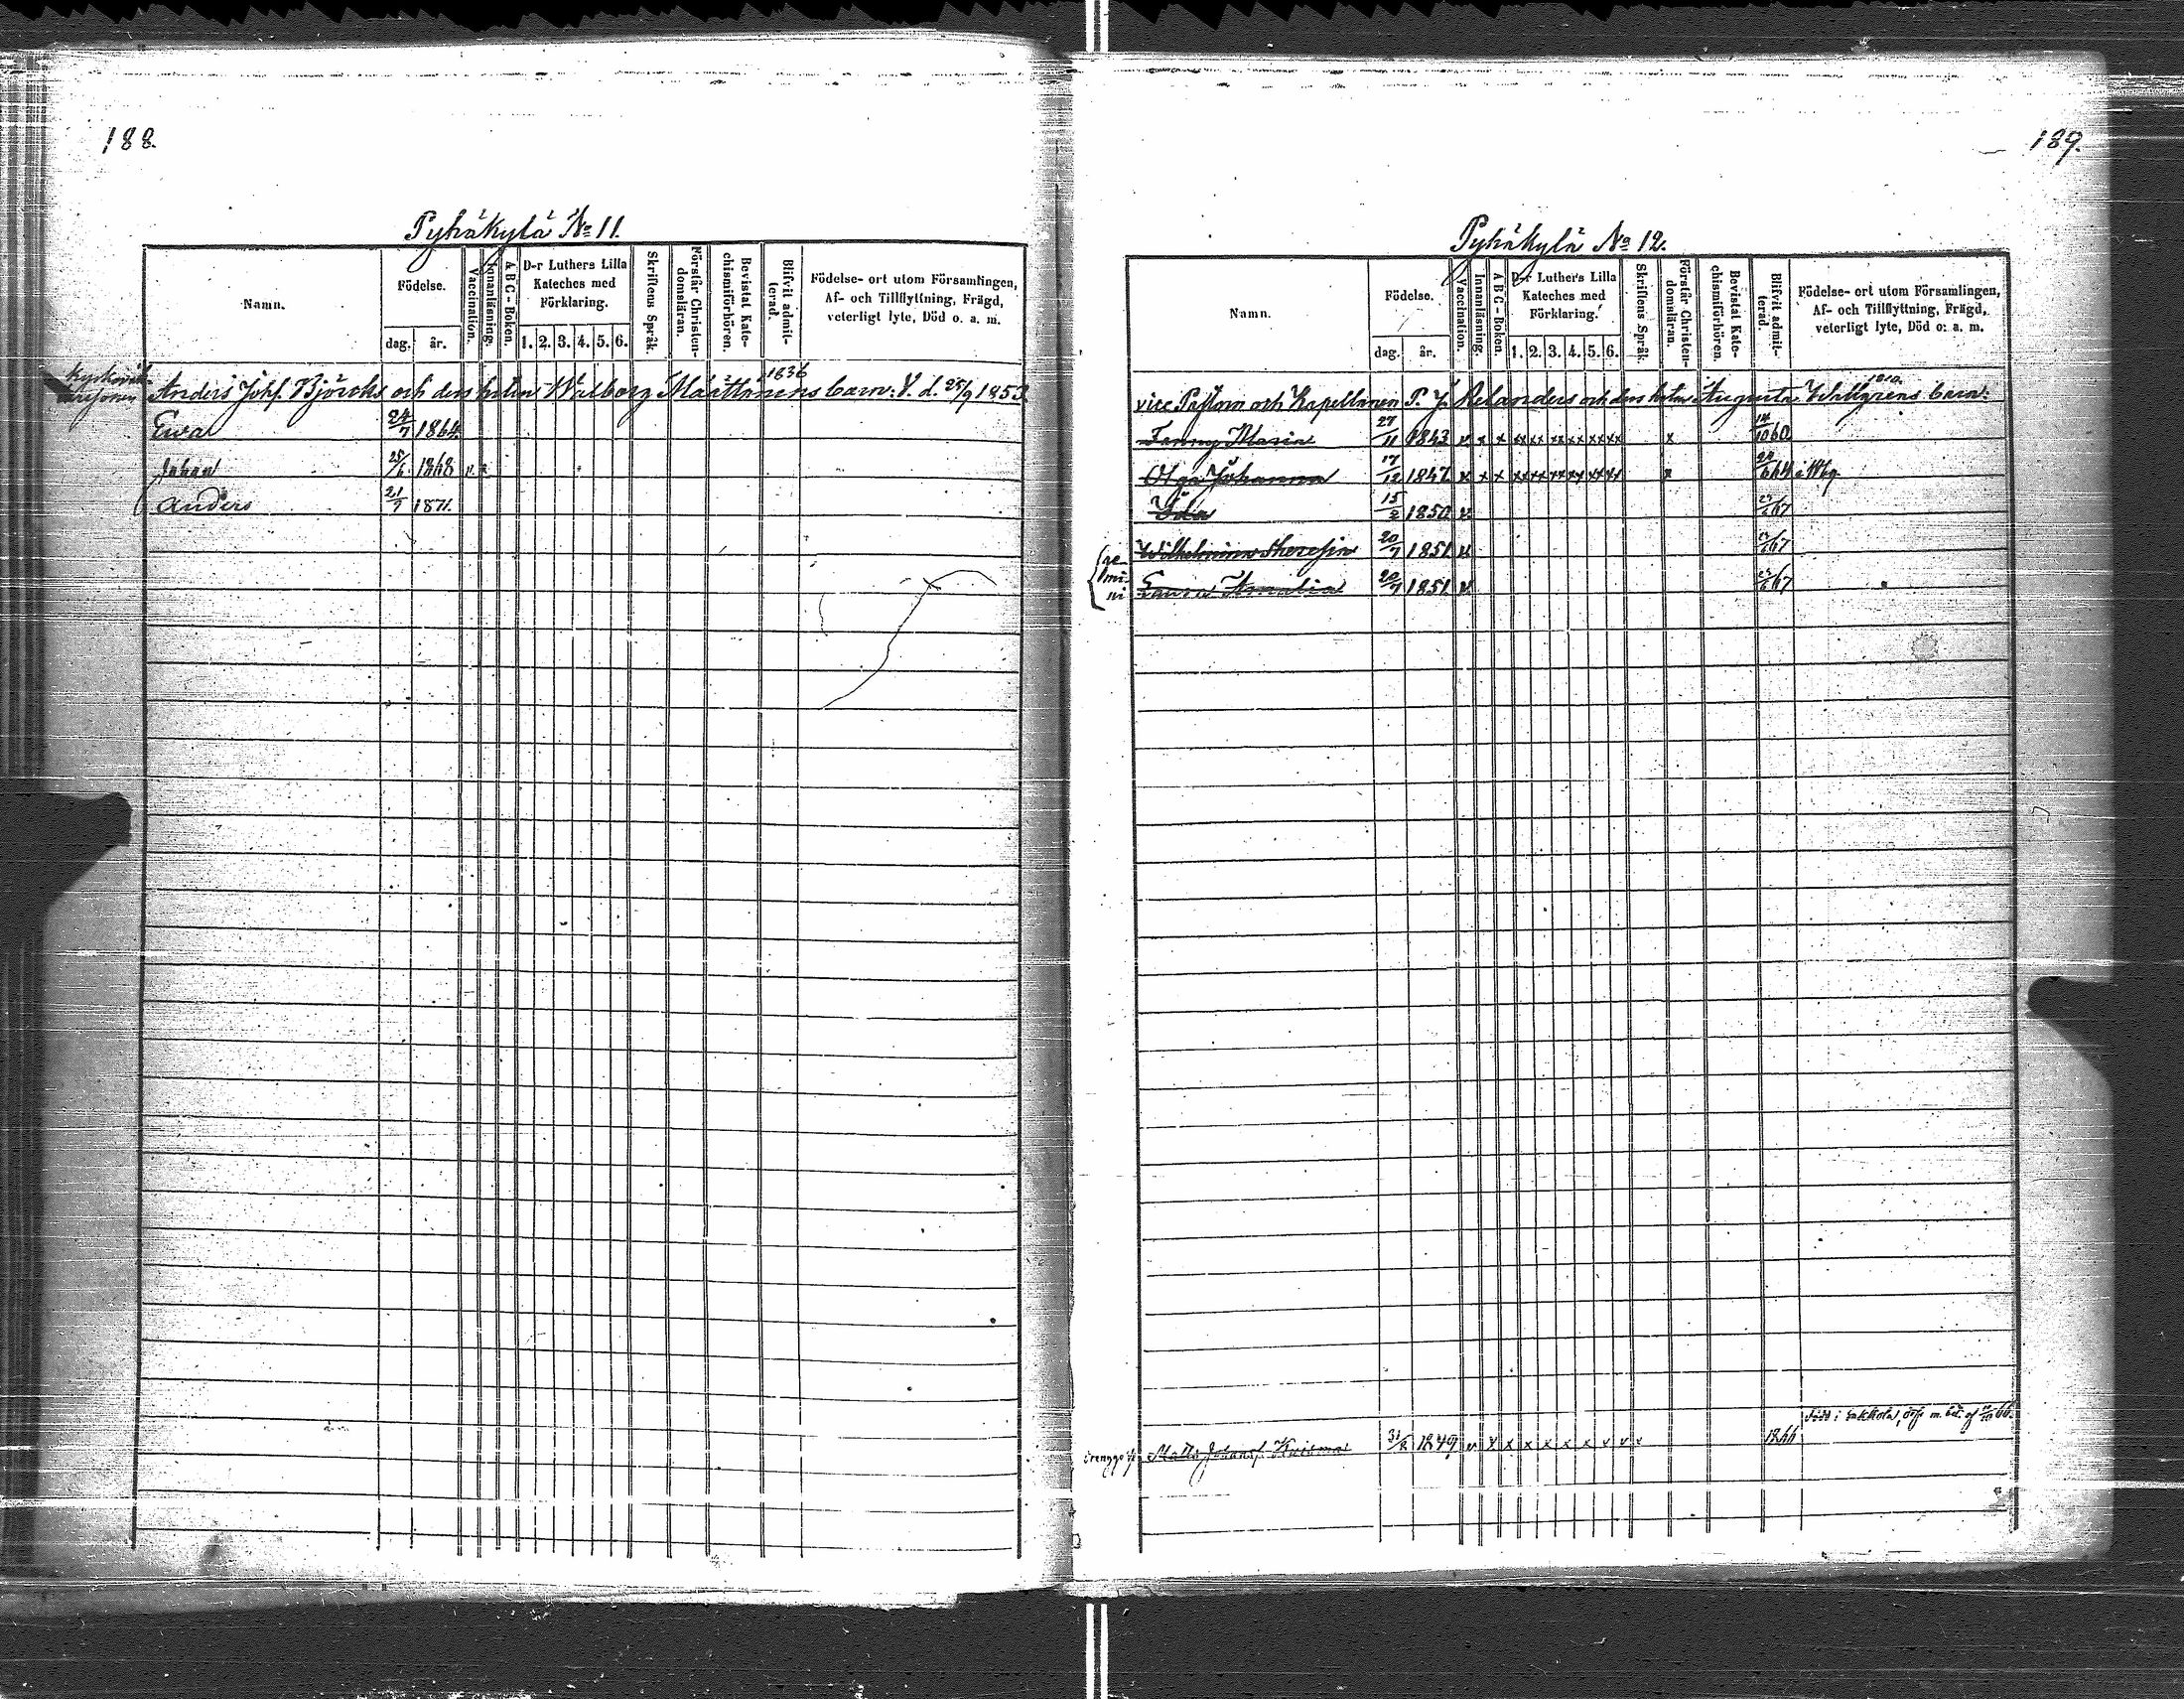 188.
Pyhäkylä No 11.
Namn.
Födelse.
dag. år.
Vaccination.
Innanläsning.
A B C - Boken.
D-r Luthers Lilla
Kateches med
Förklaring.
1. 2. 3. 4. 5. 6.
Skriftens Språk.
Förstår Christen-
domsläran.
Bevistat Kate-
chismiförhören.
Blifvit admit-
terad.
Födelse- ort utom Församlingen,
Af- och Tillflyttning, Frägd,
veterligt lyte, Död o. a. m.
1836
Anders Johs. Björcks och dess hustrus Walborg Määttänens barn: V. d. 25/9 1853.
Ewa 24/7 1864.
Johan 25/6 1868 v x
Anders 21/7 1871.
189.
Pyhäkylä No 12.
Namn.
Födelse.
dag. år.
Vaccination.
Innanläsning.
A B C - Boken.
D-r Luthers Lilla
Kateches med
Förklaring.
1. 2. 3. 4. 5. 6.
Skriftens Språk.
Förstår Christen-
domsläran.
Bevistat Kate-
chismiförhören.
Blifvit admit-
terad.
Födelse- ort utom Församlingen,
Af- och Tillflyttning, Frägd,
veterligt lyte, Död o. a. m.
vice Pastorn och Kapellanen P. J. Relanders och dess hustrus Augusta Wahlgrens barn:
Fanny Maria 27/11 1843 v x x xx xx xx xx xx xx x 14/10 60
Olga Johanna 17/12 1847 v x x xx xx xx xx xx xx x 64
Ida 15/2 1850 v 67
ge-
mi-
ni
Wilhelmina Theresia 20/7 1851 v 67
Laura Amalia 20/7 1851 v 67
Matts Johans. Kuisma 31/8 1849 v x x x x x x v v v 1866
född i Sakkola,